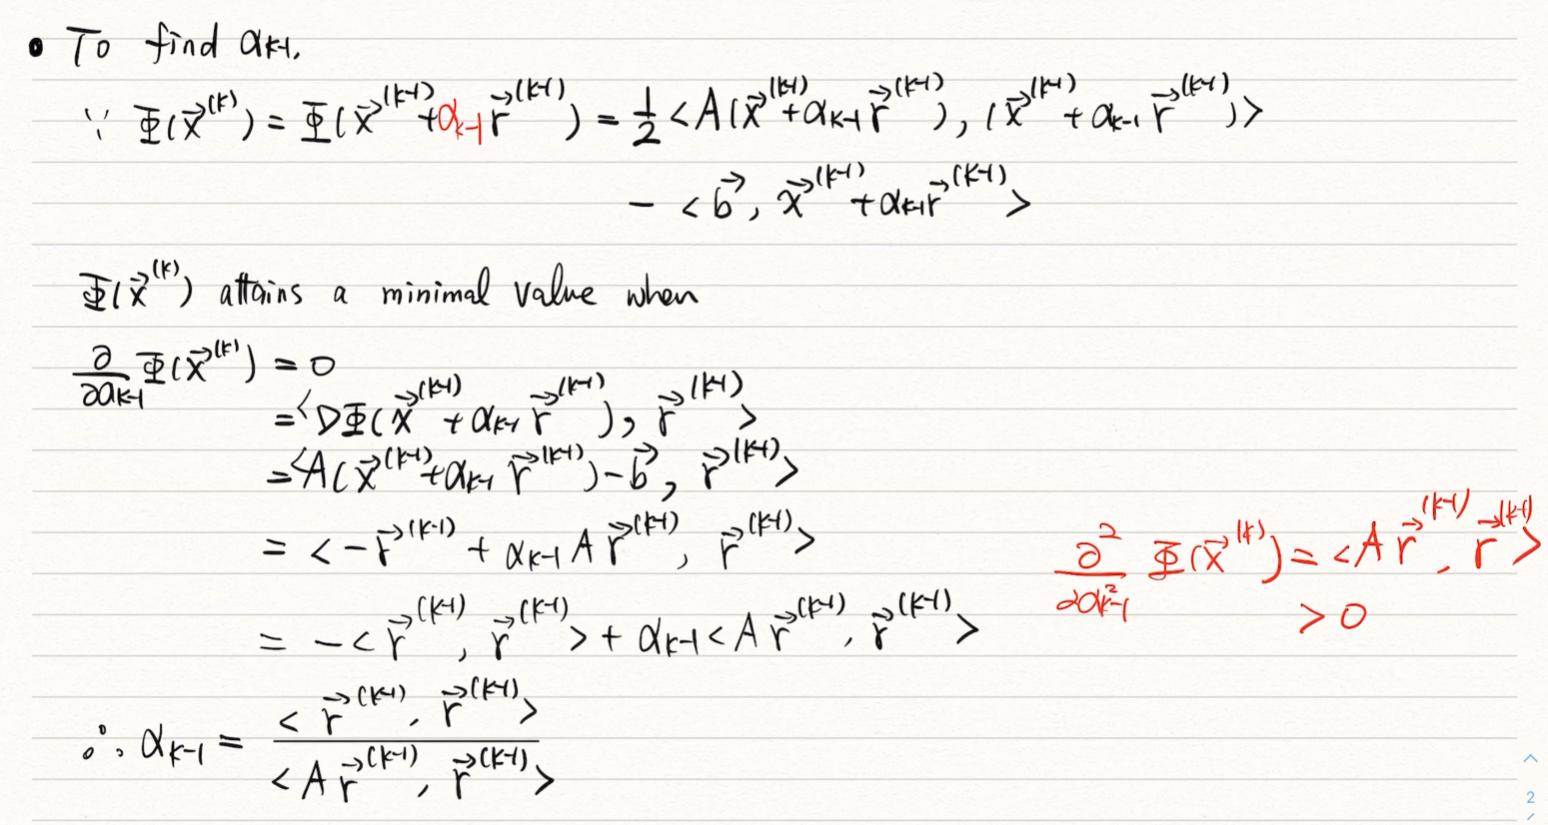 • To find αₖ₋₁,
∵ Φ(x⃗⁽ᵏ⁾) = Φ(x⃗⁽ᵏ⁻¹⁾ + αₖ₋₁ r⃗⁽ᵏ⁻¹⁾) = 1/2 <A(x⃗⁽ᵏ⁻¹⁾ + αₖ₋₁ r⃗⁽ᵏ⁻¹⁾), (x⃗⁽ᵏ⁻¹⁾ + αₖ₋₁ r⃗⁽ᵏ⁻¹⁾)>
− <b⃗, x⃗⁽ᵏ⁻¹⁾ + αₖ₋₁ r⃗⁽ᵏ⁻¹⁾>
Φ(x⃗⁽ᵏ⁾) attains a minimal value when
∂/∂αₖ₋₁ Φ(x⃗⁽ᵏ⁾) = 0
= <DΦ(x⃗⁽ᵏ⁻¹⁾ + αₖ₋₁ r⃗⁽ᵏ⁻¹⁾), r⃗⁽ᵏ⁻¹⁾>
= <A(x⃗⁽ᵏ⁻¹⁾ + αₖ₋₁ r⃗⁽ᵏ⁻¹⁾) − b⃗, r⃗⁽ᵏ⁻¹⁾>
= < −r⃗⁽ᵏ⁻¹⁾ + αₖ₋₁ A r⃗⁽ᵏ⁻¹⁾, r⃗⁽ᵏ⁻¹⁾>
= −< r⃗⁽ᵏ⁻¹⁾, r⃗⁽ᵏ⁻¹⁾> + αₖ₋₁ <A r⃗⁽ᵏ⁻¹⁾, r⃗⁽ᵏ⁻¹⁾>
∴ αₖ₋₁ = < r⃗⁽ᵏ⁻¹⁾, r⃗⁽ᵏ⁻¹⁾> / <A r⃗⁽ᵏ⁻¹⁾, r⃗⁽ᵏ⁻¹⁾>
∂²/∂αₖ₋₁² Φ(x⃗⁽ᵏ⁾) = <A r⃗⁽ᵏ⁻¹⁾, r⃗⁽ᵏ⁻¹⁾>
> 0
2